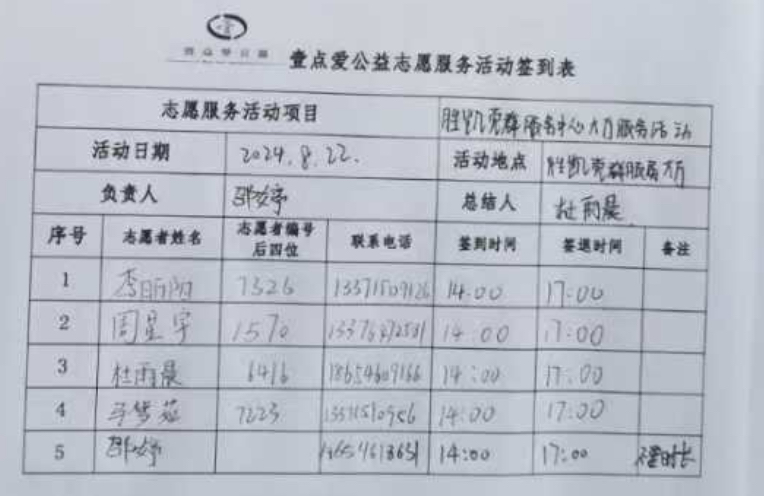 壹点爱公益志愿服务活动签到表
志愿服务活动项目 胜凯党群服务中心大厅服务活动
活动日期 2024.8.22. 活动地点 胜凯党群服务大厅
负责人 邵婷 总结人 杜雨晨
序号 志愿者姓名 志愿者编号后四位 联系电话 签到时间 签退时间 备注
1 李昕阳 7326 13371509126 14:00 17:00
2 周星宇 1570 14:00 17:00
3 杜雨晨 6416 18654609166 14:00 17:00
4 7223 14:00 17:00
5 邵婷 14:00 17:00 不要时长